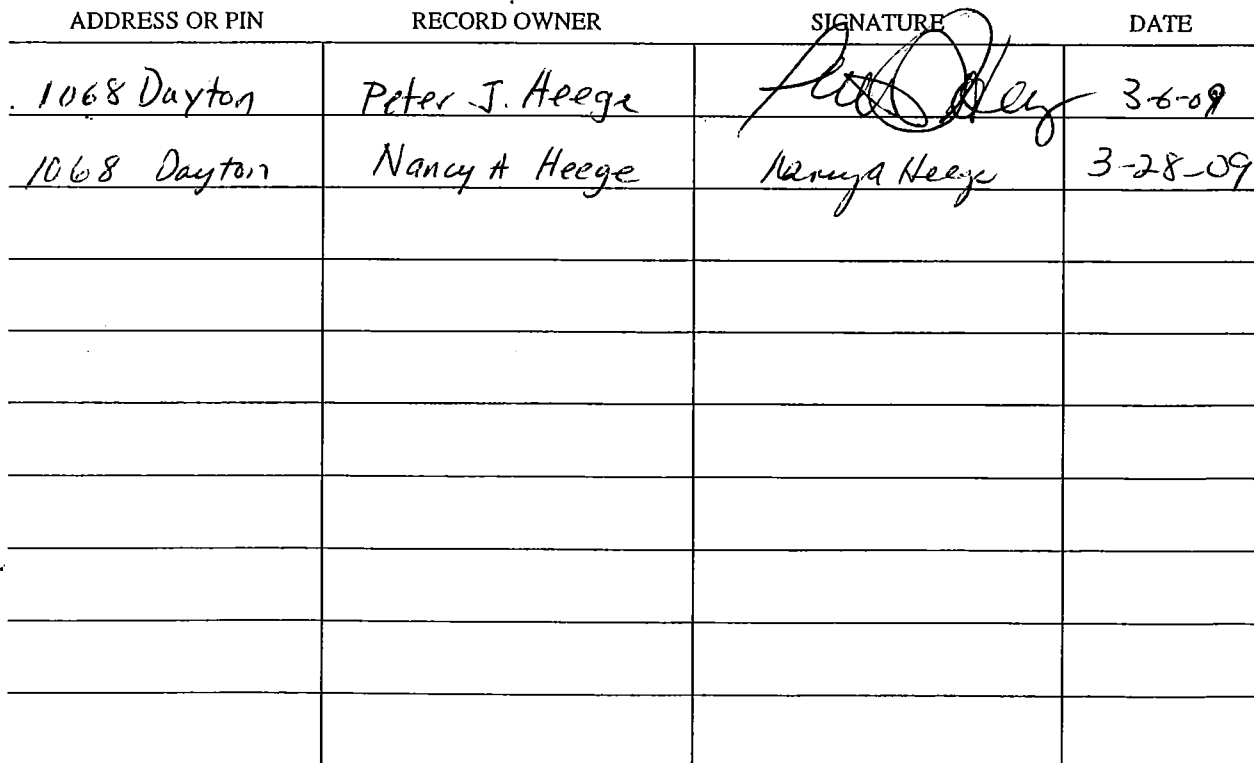 ADDRESS OR PIN RECORD OWNER SIGNATURE DATE
1068 Dayton Peter J. Heege 3-6-09
1068 Dayton Nancy A Heege Nancy A Heege 3-28-09